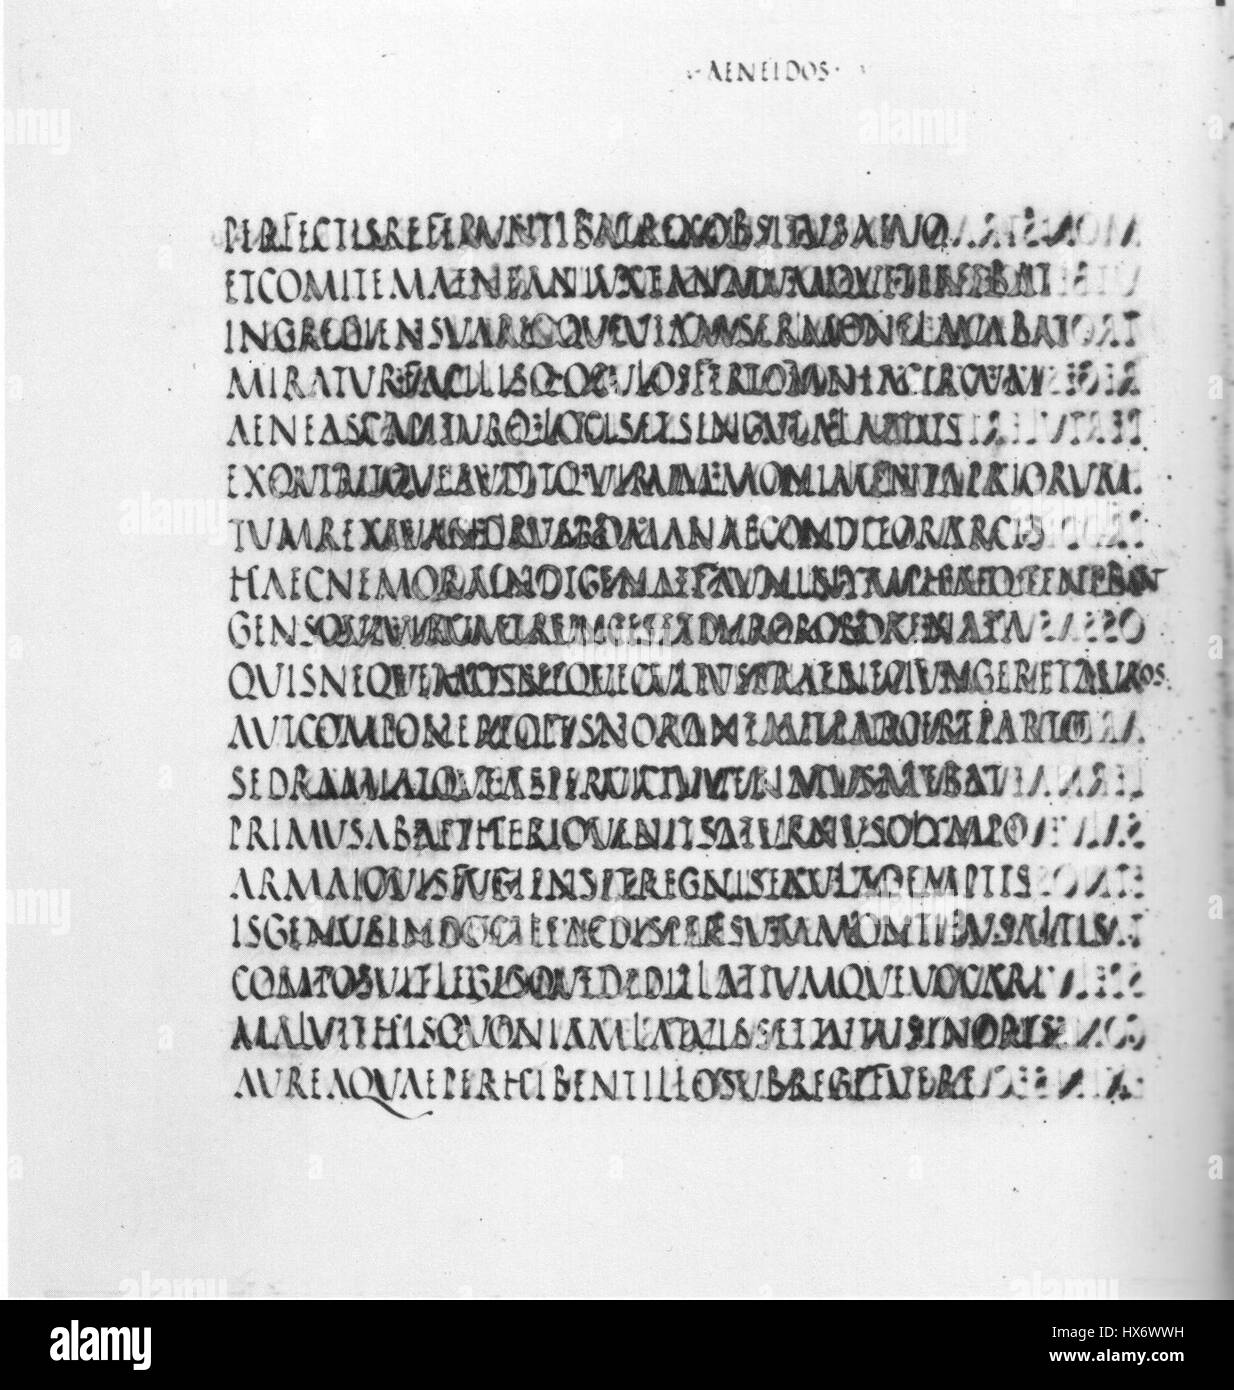 ·AENEIDOS·
PERFECTISREFERUNTIBATREXOBSITUSAEVO
ETCOMITEMAENEANIUXTANATUMQUETENEBAT
INGREDIENSVARIOQUEVIAMSERMONELEVABAT
MIRATURFACILISQ·OCULOSFERTOMNIACIRCUM
AENEASCAPITURQ·LOCISETSINGULALAETUS
EXQUIRITQUEAUDITQ·VIRUMMONIMENTAPRIORUM
TUMREXEVANDRUSROMANAECONDITORARCIS
HAECNEMORAINDIGENAEFAUNINYMPHAEQ·TENEBANT
GENSQUEVIRUMTRUNCISETDUROROBORENATA
QUISNEQUEMOSNEQUECULTUSERATNECIUNGERETAUROS
AUTCOMPONEREOPESNORANTAUTPARCEREPARTO
SEDRAMIATQUEASPERVICTUVENATUSALEBAT
PRIMUSABAETHERIOVENITSATURNUSOLYMPO
ARMAIOVISFUGIENSETREGNISEXULADEMPTIS
ISGENUSINDOCILEACDISPERSUMMONTIBUSALTIS
COMPOSUITLEGESQUEDEDITLATIUMQUEVOCARI
MALUITHISQUONIAMLATUISSETTUTUSINORIS
AUREAQUAEPERHIBENTILLOSUBREGEFUERE